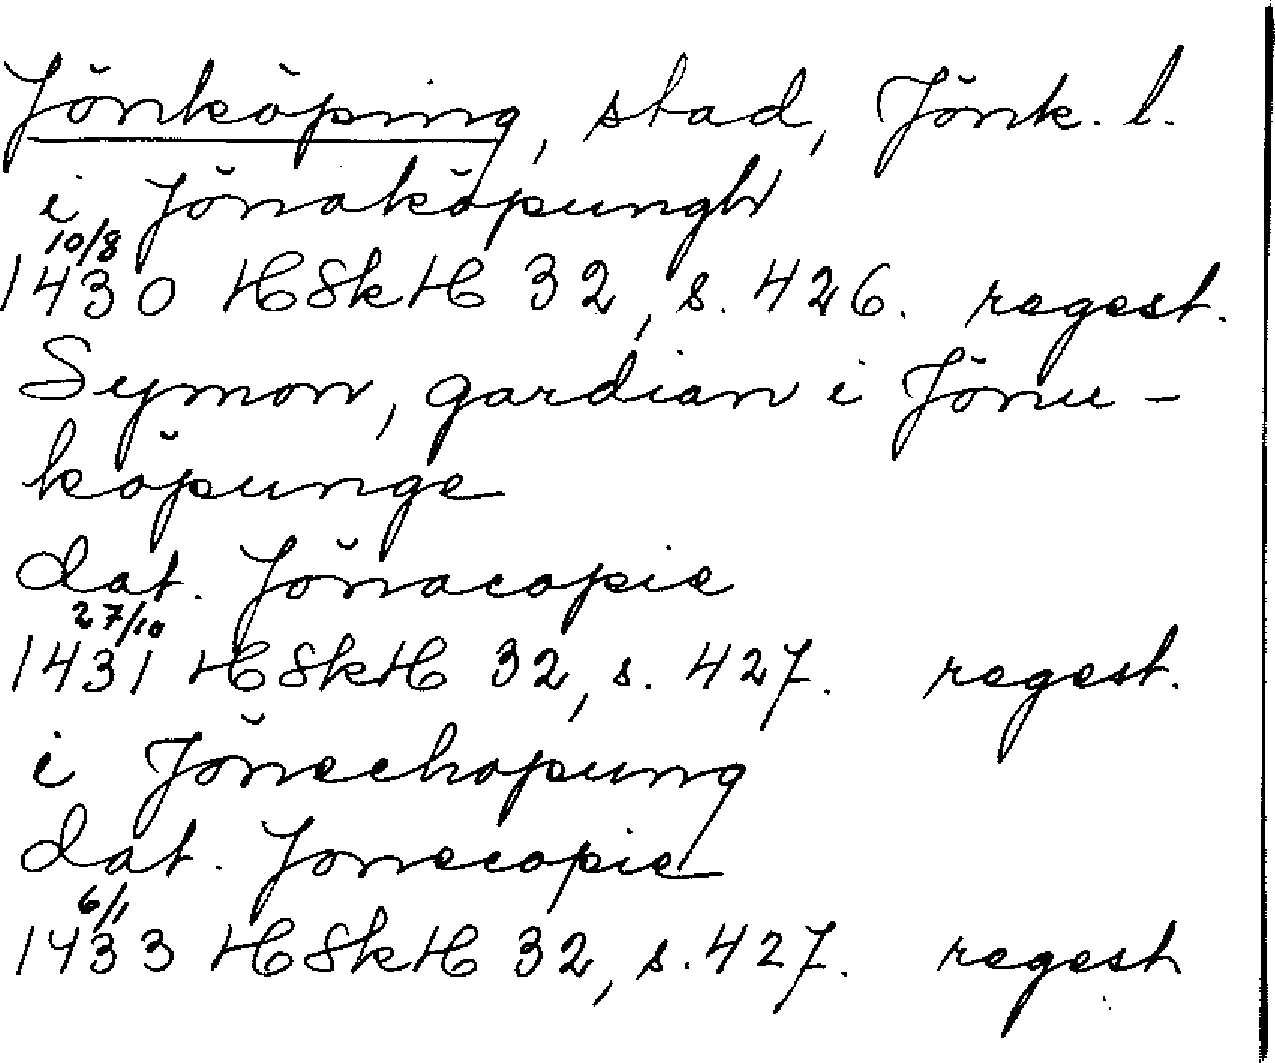 Jönköping, stad, Jönk. l.
i Jönaköpungh
10/8
1430 HSkH 32, s. 426. regest.
Symon, gardian i Jönu-
köpunge
dat. Jönacopie
27/10
1431 HSkH 32, s. 427. regest.
i Jönechopung
dat. Jonecopie
6/1
1433 HSkH 32, s. 427. regest